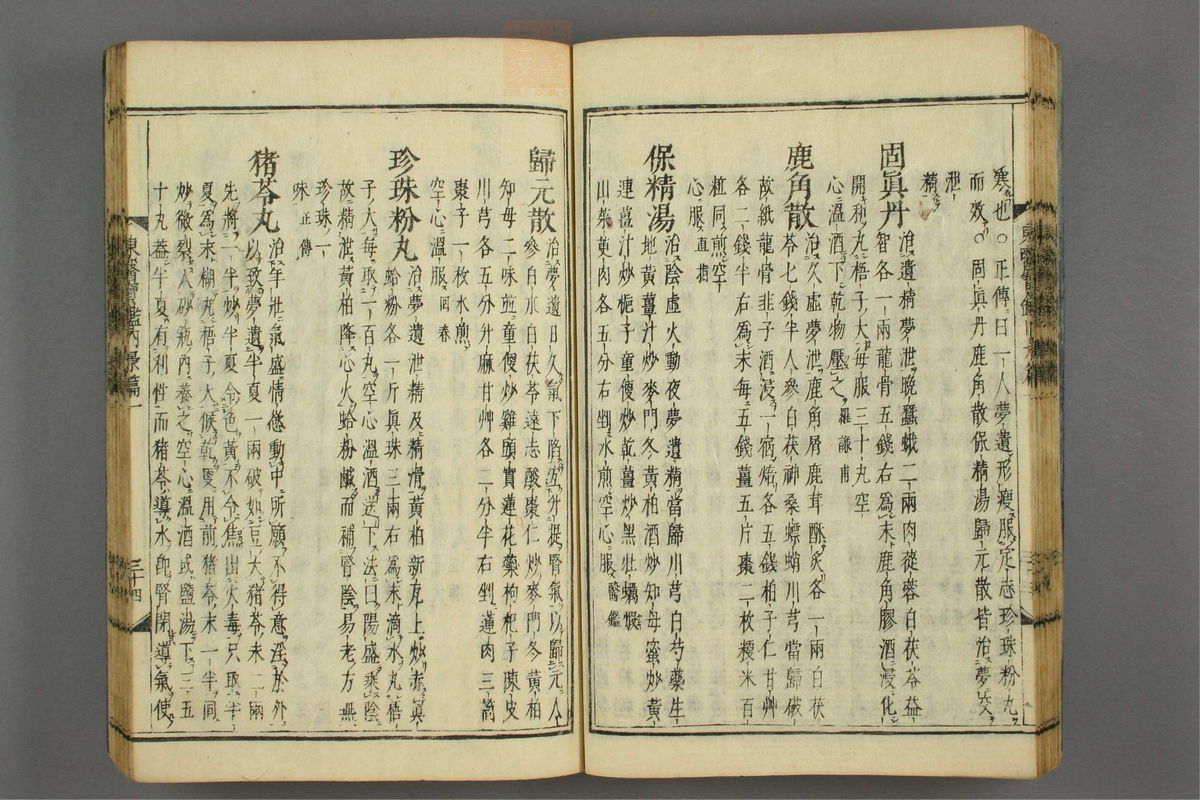 寒也○正傳曰一人夢遺形瘦服定志珍珠粉丸
而效○固眞丹鹿角散保精湯歸元散皆治夢交
泄精
固眞丹
治遺精夢泄晩蠶蛾二兩肉蓯蓉白茯苓益
智各一兩龍骨五錢右爲末鹿角膠酒浸化
開和丸梧子大每服三十丸空
心溫酒下乾物壓之羅謙甫
鹿角散
治久虛夢泄鹿角屑鹿茸酥炙各一兩白茯
苓七錢半人參白茯神桑螵蛸川芎當歸破
故紙龍骨韭子酒浸一宿焙各五錢柏子仁甘艸
各二錢半右爲末每五錢薑五片棗二枚粳米百
粒同煎空
心服直指
保精湯
治陰虛火動夜夢遺精當歸川芎白芍藥生
地黃薑汁炒麥門冬黃柏酒炒知母蜜炒黃
連薑汁炒梔子童便炒乾薑炒黑牡蠣煆
山茱萸肉各五分右剉水煎空心服醫鑑
歸元散
治夢遺日久氣下陷宜升提腎氣以歸元人
參白朮白茯苓遠志酸棗仁炒麥門冬黃柏
知母二味並童便炒雞頭實蓮花蘂枸杞子陳皮
川芎各五分升麻甘艸各二分半右剉蓮肉三箇
棗子一枚水煎
空心溫服回春
珍珠粉丸
治夢遺泄精及精滑黃柏新瓦上炒赤眞
蛤粉各一斤眞珠三兩右爲末滴水丸梧
子大每取一百丸空心溫酒送下法曰陽盛乘陰
故精泄黃柏降心火蛤粉鹹而補腎陰易老方無
珍珠一
味正傳
猪苓丸
治年壯氣盛情慾動中所願不得意淫於外
以致夢遺半夏一兩破如豆大猪苓末二兩
先將一半炒半夏令色黃不令焦出火毒只取半
夏爲末糊丸梧子大候乾更用前猪苓末一半同
炒微裂入砂瓶內養之空心溫酒或鹽湯下三五
十丸蓋半夏有利性而猪苓導水卽腎閉導氣使
東醫寶鑑內景篇一
三十四